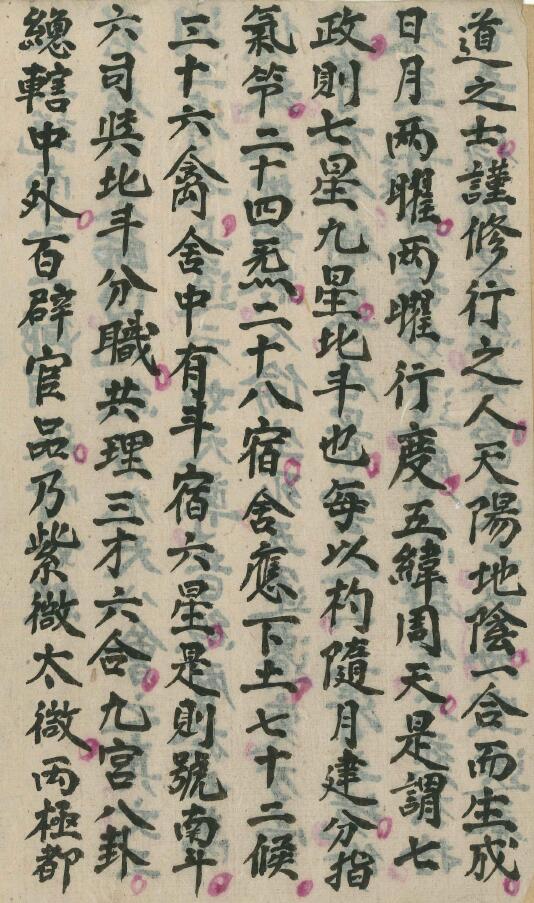 道之士謹修行之人天陽地陰一合而生成
日月两曜两曜行度五緯周天是謂七
政則七星九星北斗也每以杓隨月建分指
氣節二十四炁二十八宿舍應下土七十二候
三十六禽舍中有斗宿六星是則號南斗
六司與北斗分職共理三才六合九宮八卦
總轄中外百辟官品乃紫微太微两極都